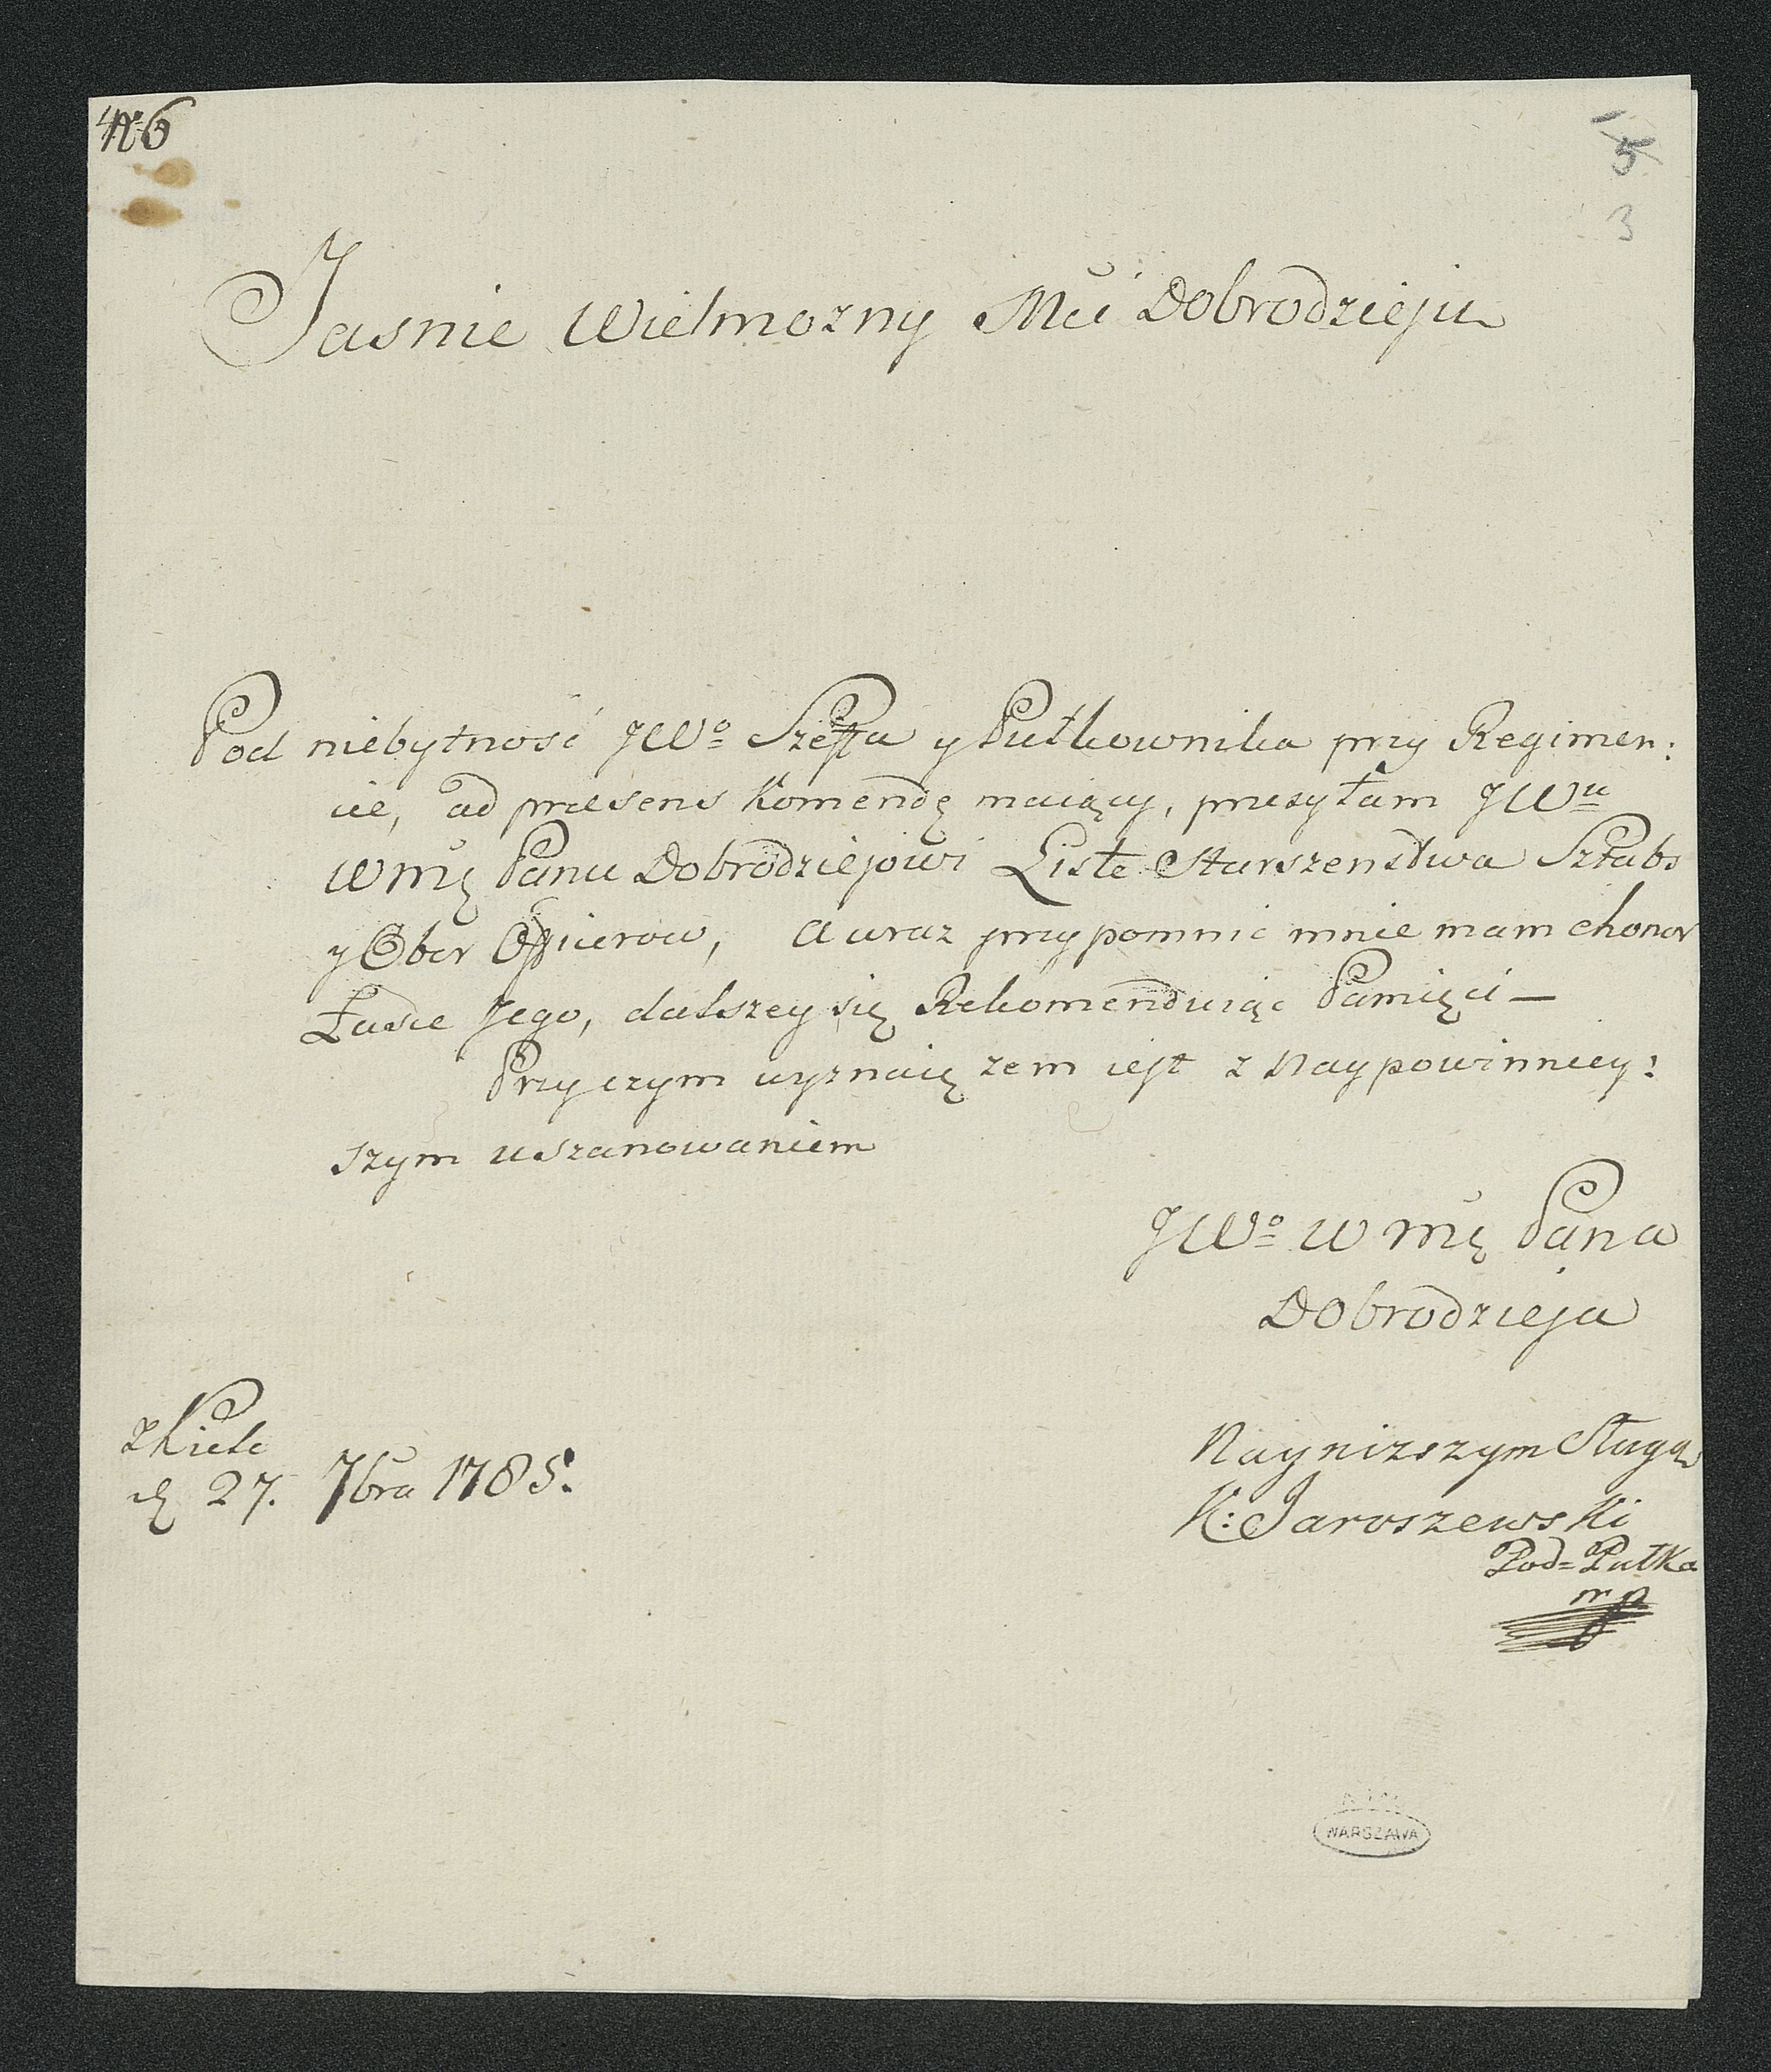 N 6
5
3
Jasnie Wielmozny Mci Dobrodzieju
Pod niebytność JWo Szeffa y Pułkownika przy Regimen:
cie, ad præsens Komendę maiący, przesyłam JWu
WMę Panu Dobrodziejowi Liste Starszenstwa Sztabs
y Ober Officierow, a wraz przypomnic mnie mam chonor
Łasce Jego, dalszey się Rekomenduiąc Pamięci —
Przyczym wyznaię zem iest z Naypowinniey:
szym uszanowaniem
JWo WMę Pana
Dobrodzieja
z Kielc
d 27. 7bra 1785.
Nayniższym Sługą
K: Jaroszewski
Pod=Pułka
mp
WARSZAWA